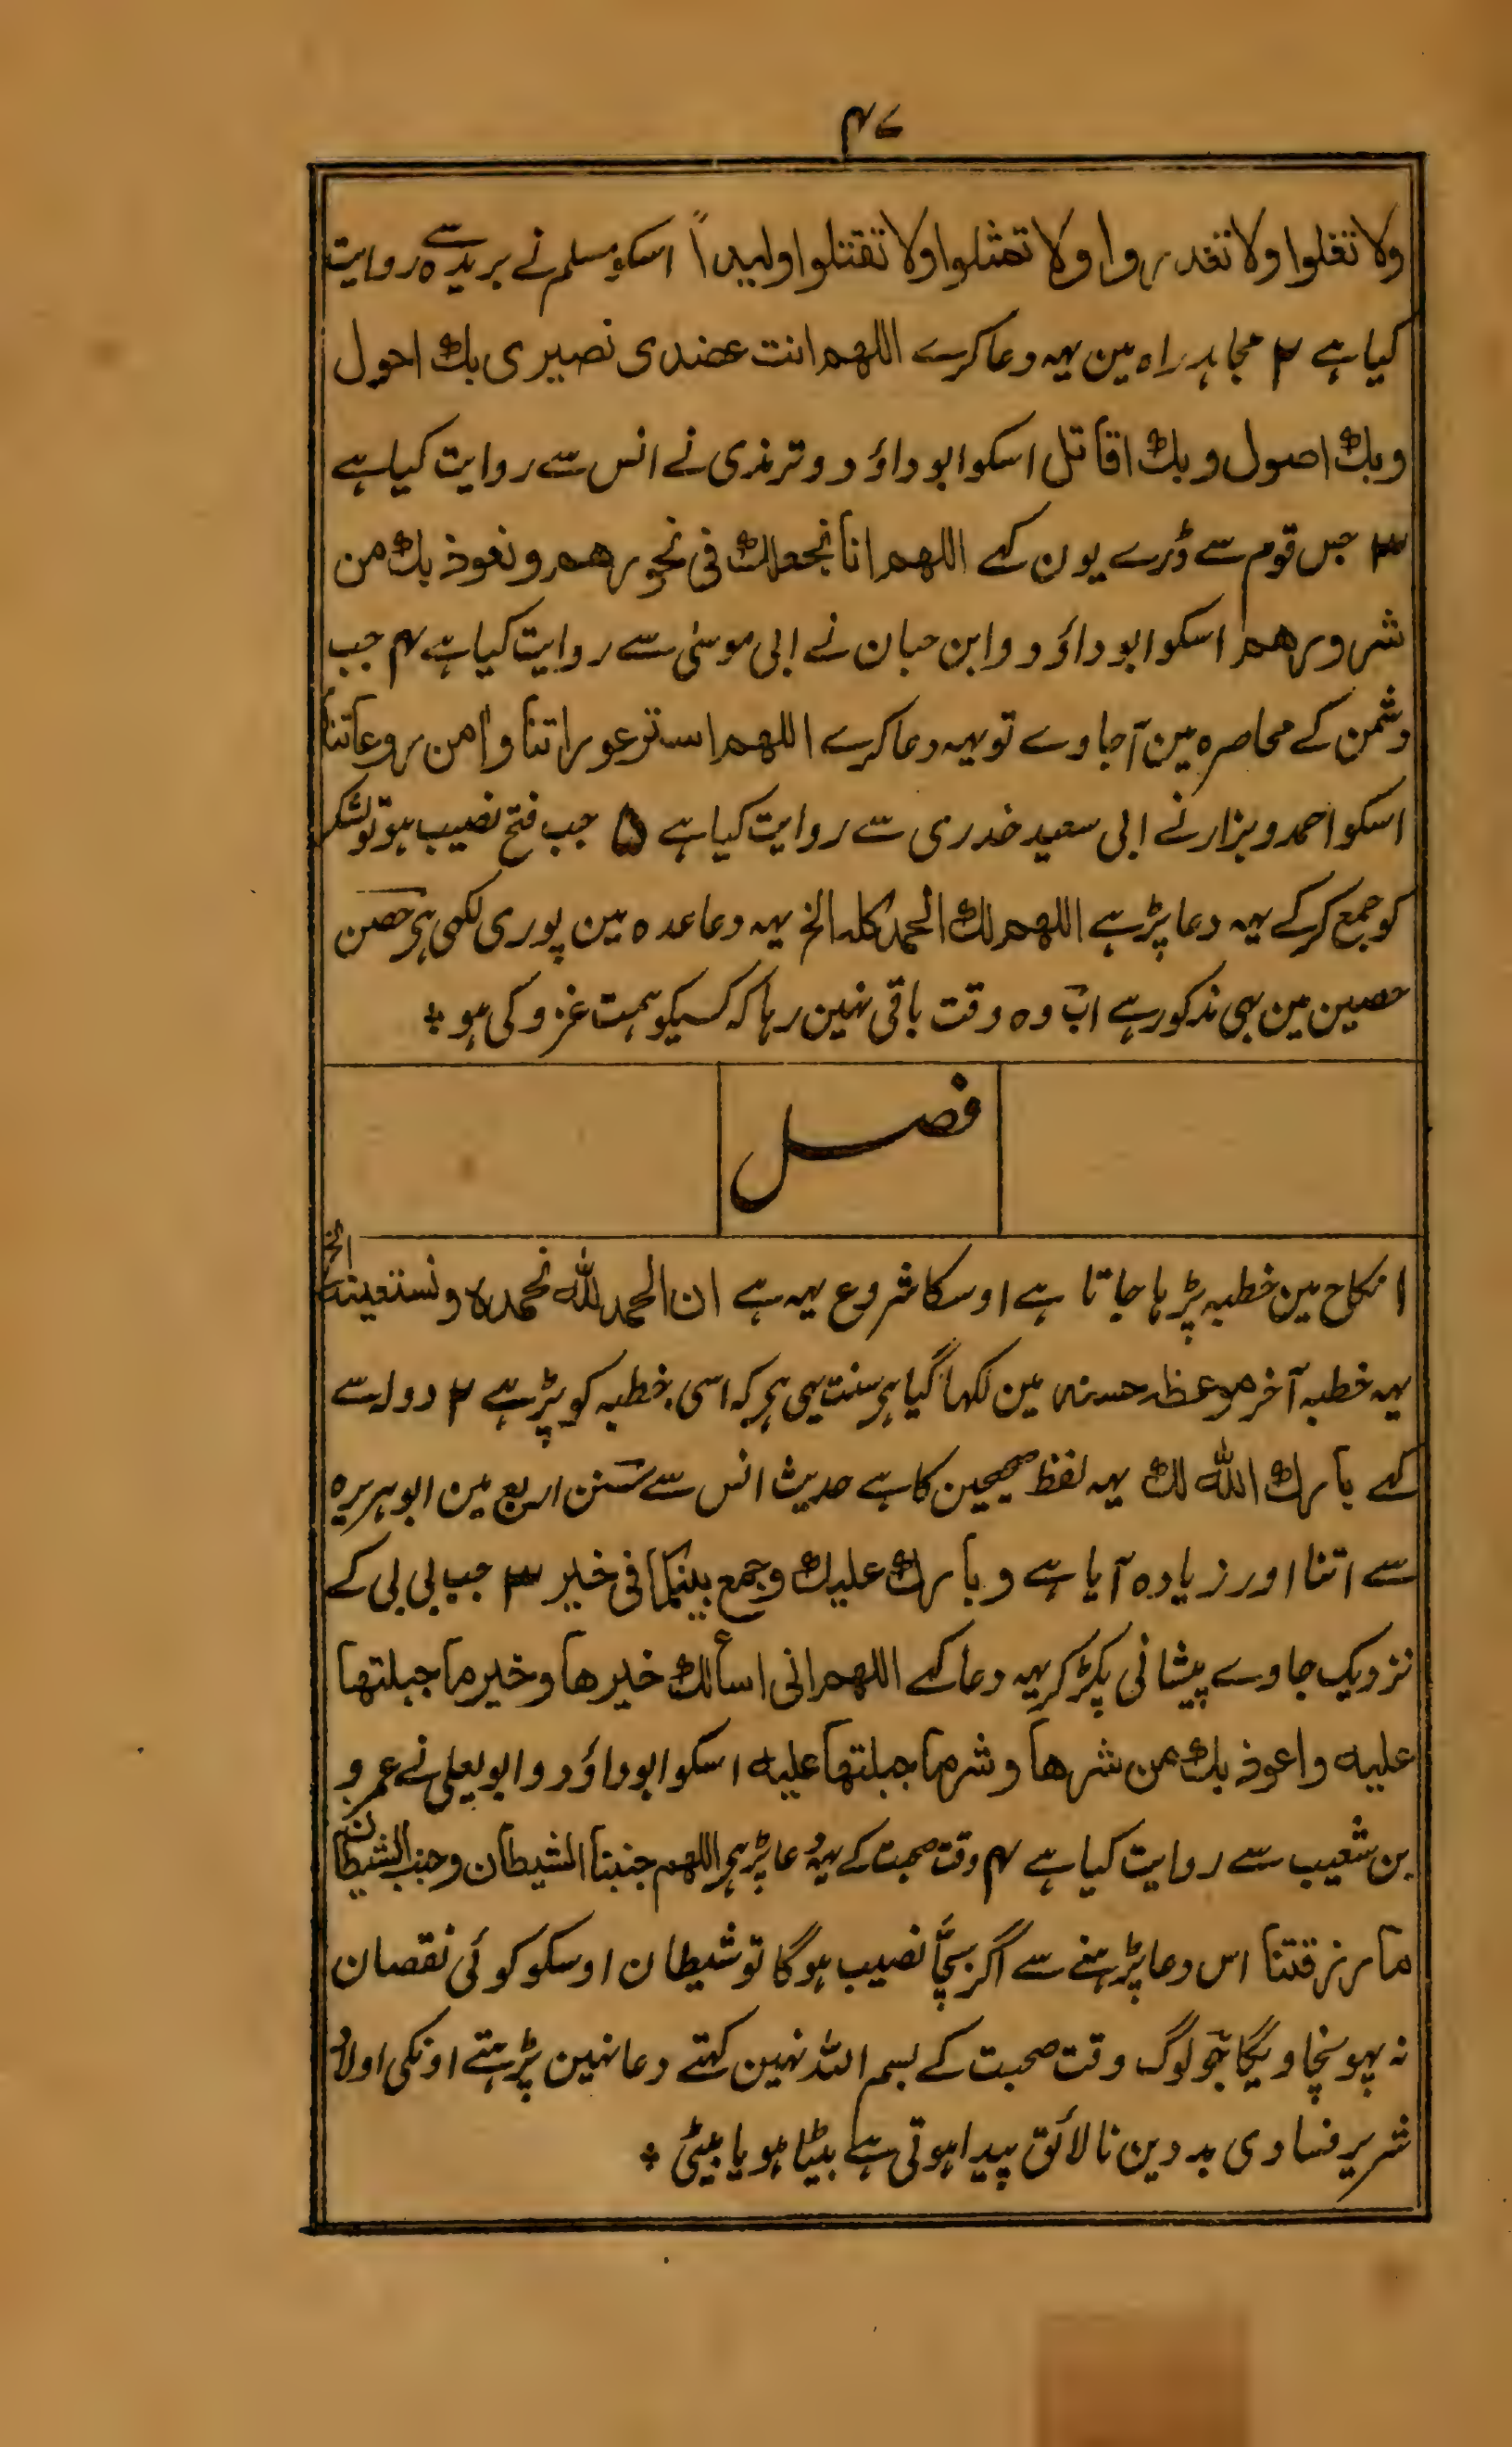 ۴۷
ولا تغلوا ولا تغدروا ولا تمثلوا ولا تقتلوا وليداً اسکو مسلم نے بریدہ سے روایت
کیا ہے ۲ مجاہد راہ مین یہہ دعا کرے اللهم انت عضدی نصیری بك احول
وبك اصول وبك اقاتل اسکو ابو داؤد و ترمذی نے انس سے روایت کیا ہے
۳ جس قوم سے ڈرے یون کہے اللهم انا نجعلك فی نحورهم ونعوذ بك من
شرورهم اسکو ابو داؤد و ابن حبان نے ابی موسیٰ سے روایت کیا ہے ۴ جب
دشمن کے محاصرہ مین آجاوے تو یہہ دعا کرے اللهم استر عوراتنا وامن روعاتنا
اسکو احمد و بزار نے ابی سعید خدری سے روایت کیا ہے ۵ جب فتح نصیب ہو تو لشکر
کو جمع کر کے یہہ دعا پڑہے اللهم لك الحمد كله الخ یہہ دعا عدہ مین پوری لکھی ہی حصن
حصین مین بھی مذکور ہے اب وہ وقت باقی نہین رہا کہ کسیکو ہمت غزو کی ہو ٭
فصل
۱ نکاح مین خطبہ پڑہا جاتا ہے اوسکا شروع یہہ ہے ان الحمد لله نحمده ونستعینه الخ
یہہ خطبہ آخر موعظہ حسنہ مین لکھا گیا ہی سنت یہی ہی کہ اسی خطبہ کو پڑہے ۲ دولہ سے
کہے بارك الله لك یہہ لفظ صحیحین کا ہے حدیث انس سے سنن اربع مین ابوہریرہ
سے اتنا اور زیادہ آیا ہے وبارك علیك وجمع بینکما فی خیر ۳ جب بی بی کے
نزدیک جاوے پیشانی پکڑ کر یہہ دعا کہے اللهم انی اسألك خیرها وخیر ما جبلتها
علیه واعوذ بك من شرها وشر ما جبلتها علیه اسکو ابو داؤد و ابو یعلی نے عمرو
بن شعیب سے روایت کیا ہے ۴ وقت صحبت کے یہہ دعا پڑہی اللهم جنبنا الشیطان وجنب الشیطان
ما رزقتنا اس دعا پڑہنے سے اگر بچّا نصیب ہوگا تو شیطان اوسکو کوئی نقصان
نہ پہونچاویگا جو لوگ وقت صحبت کے بسم اللہ نہین کہتے دعا نہین پڑہتے اونکی اولاد
شریر فسادی بد دین نالائق پیدا ہوتی ہے بیٹا ہو یا بیٹی ٭